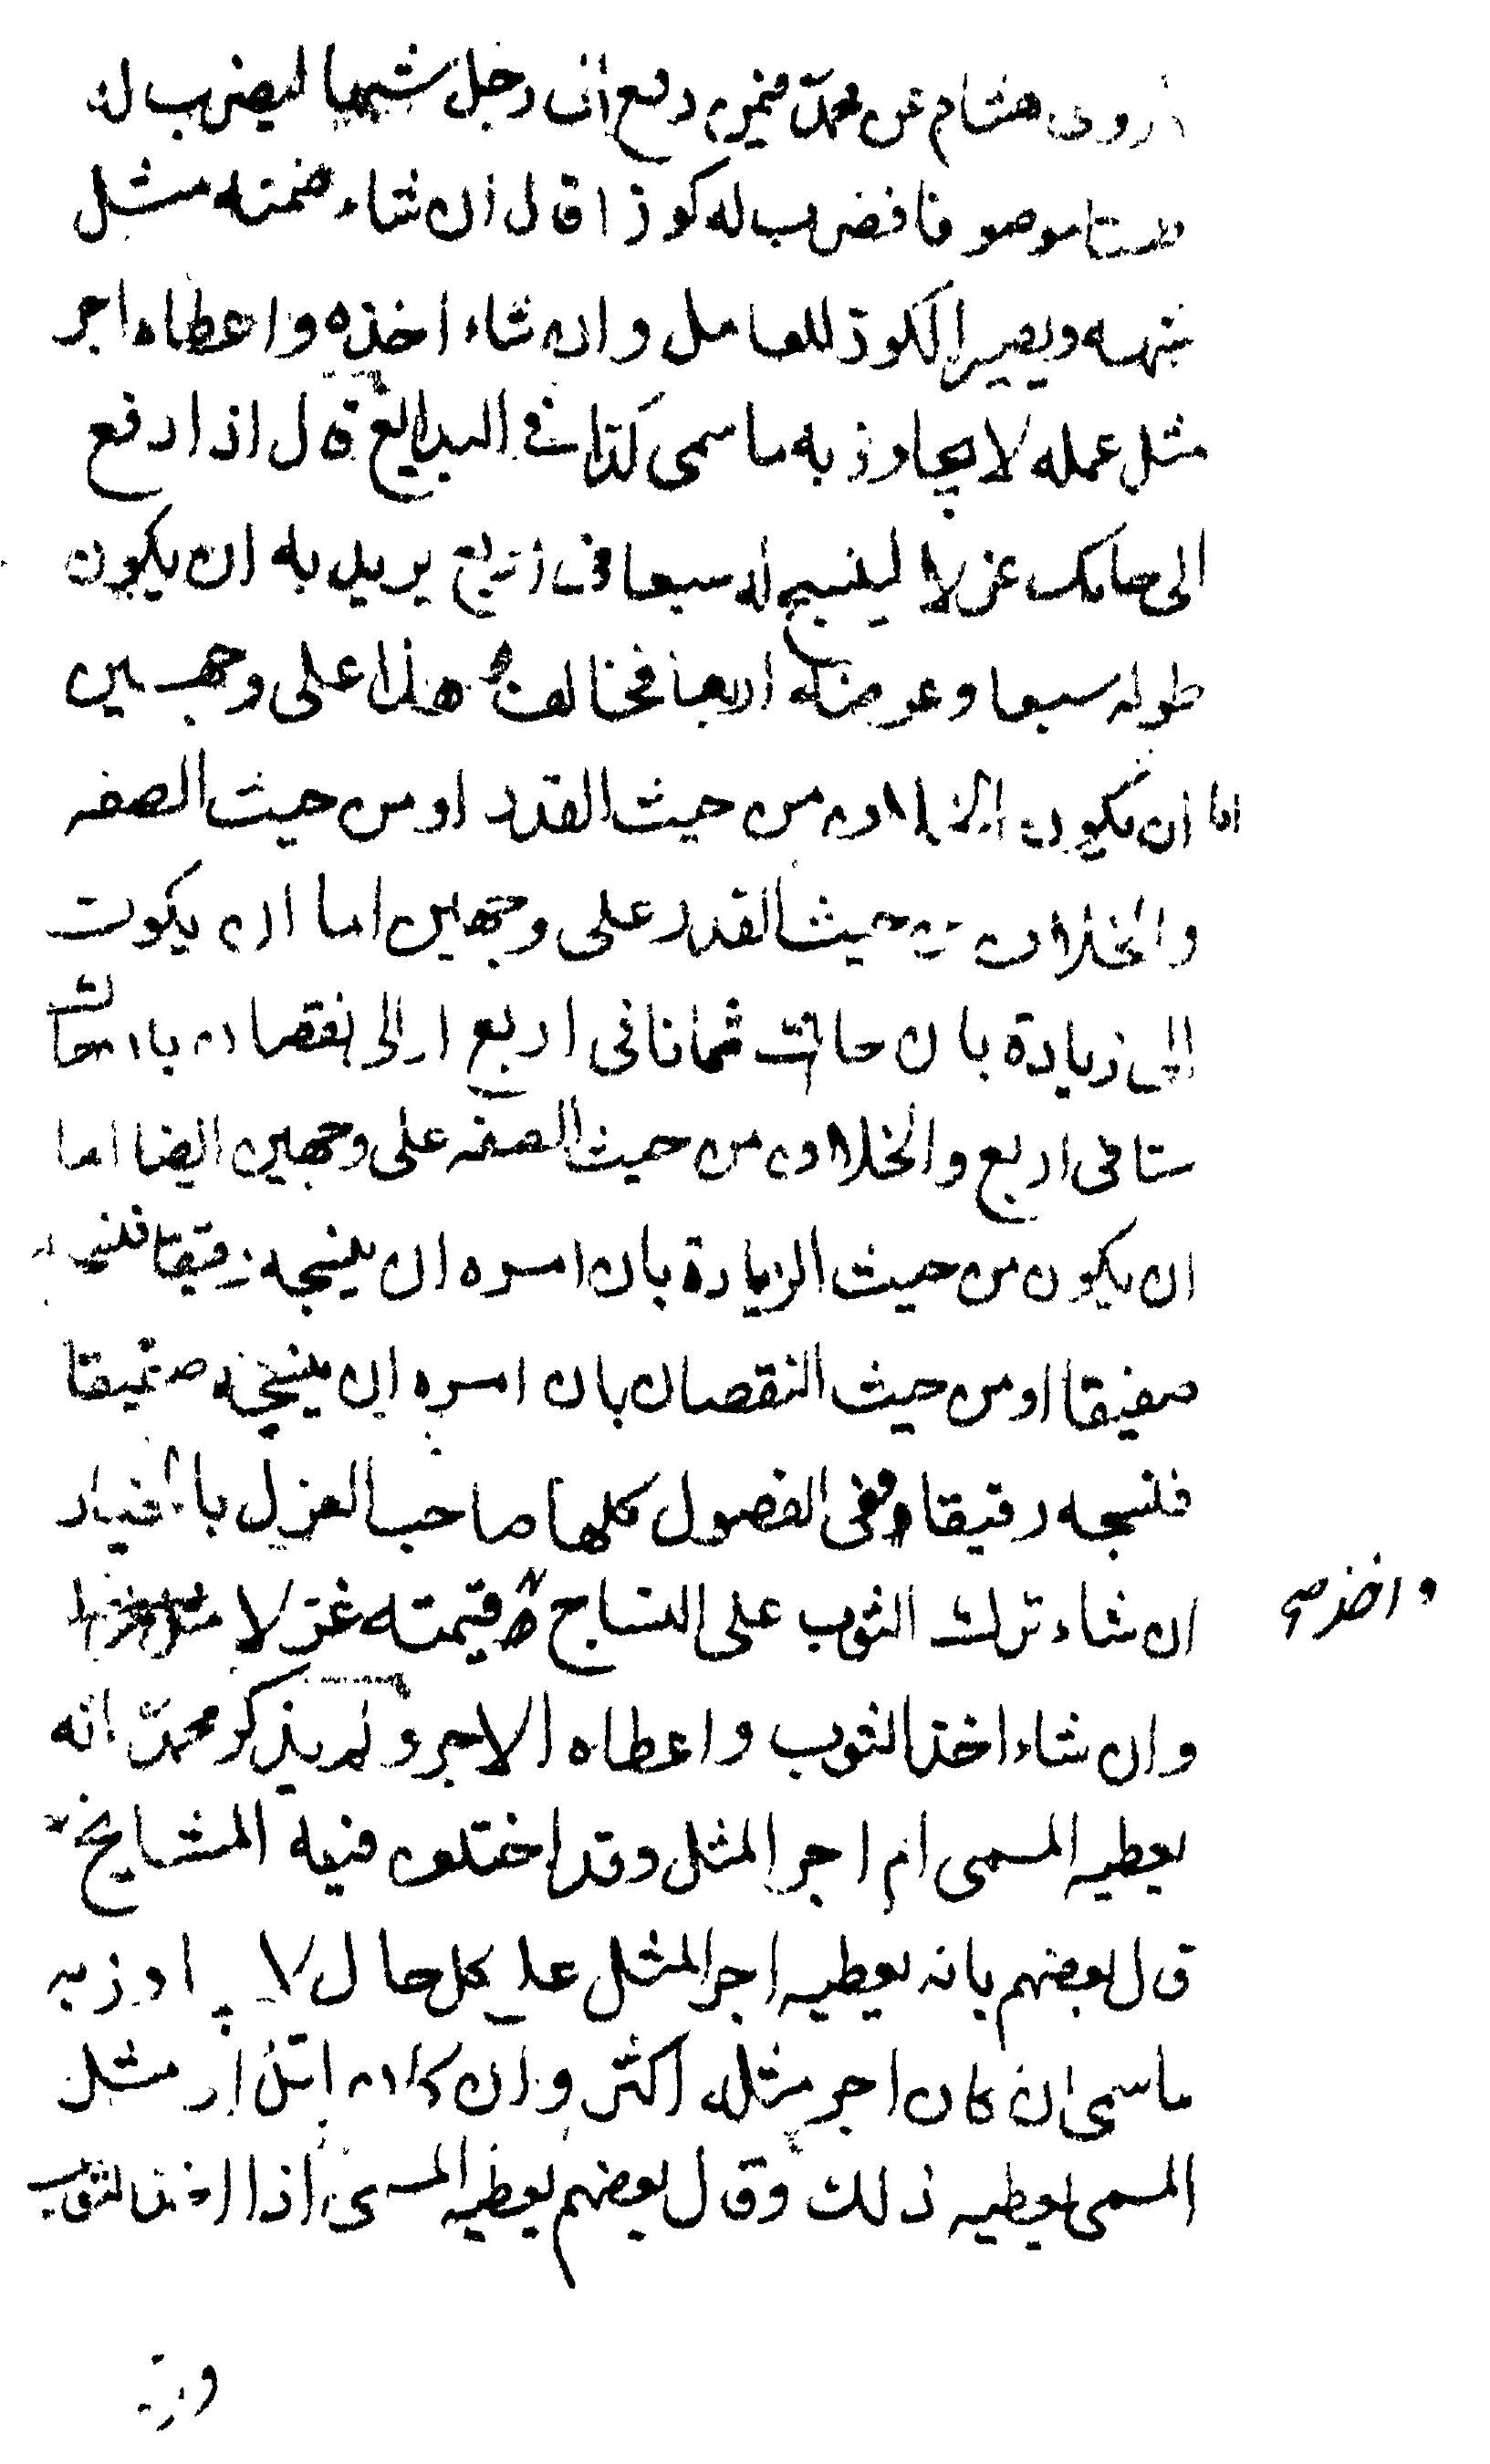 روى هشام عن محمد فيمن دفع الى رجل شبها ليضرب له
طستا موصوفا فضرب له كوزا قال ان شاء ضمنه مثل
شبهه ويصير الكوز للعامل وان شاء اخذه واعطاه اجر
مثل عمله لا يجاوز به ما سمى كذا في البدايع قال اذا دفع
الى حايك غزلا لينسج له سبعا في اربع يريد به ان يكون
طوله سبعا وعرضه اربعا فخالف هذا على وجهين
اما ان يكون الخلاف من حيث القدر او من حيث الصفه
والخلاف من حيث القدر على وجهين اما ان يكون
الى زيادة بان حاك ثمانا في اربع او الى نقصان بان حاك
ستا في اربع والخلاف من حيث الصفه على وجهين ايضا اما
ان يكون من حيث الزيادة بان امره ان ينسجه رقيقا فنسجه
صفيقا او من حيث النقصان بان امره ان ينسجه صفيقا
فنسجه رقيقا وفي الفصول كلها صاحب الغزل بالخيار
ان شاء ترك الثوب على النساج قيمته غزلا
واخذ صح
وان شاء اخذ الثوب واعطاه الاجر ولم يذكر محمد انه
يعطيه المسمى ام اجر المثل وقد اختلف فيه المشايخ
قال بعضهم بانه يعطيه اجر المثل على كل حال لا يجاوز به
ما سمى ان كان اجر مثله اكثر وان كان اقل او مثل
المسمى يعطيه ذلك وقال بعضهم يعطيه المسمى اذا اخذ الثوب